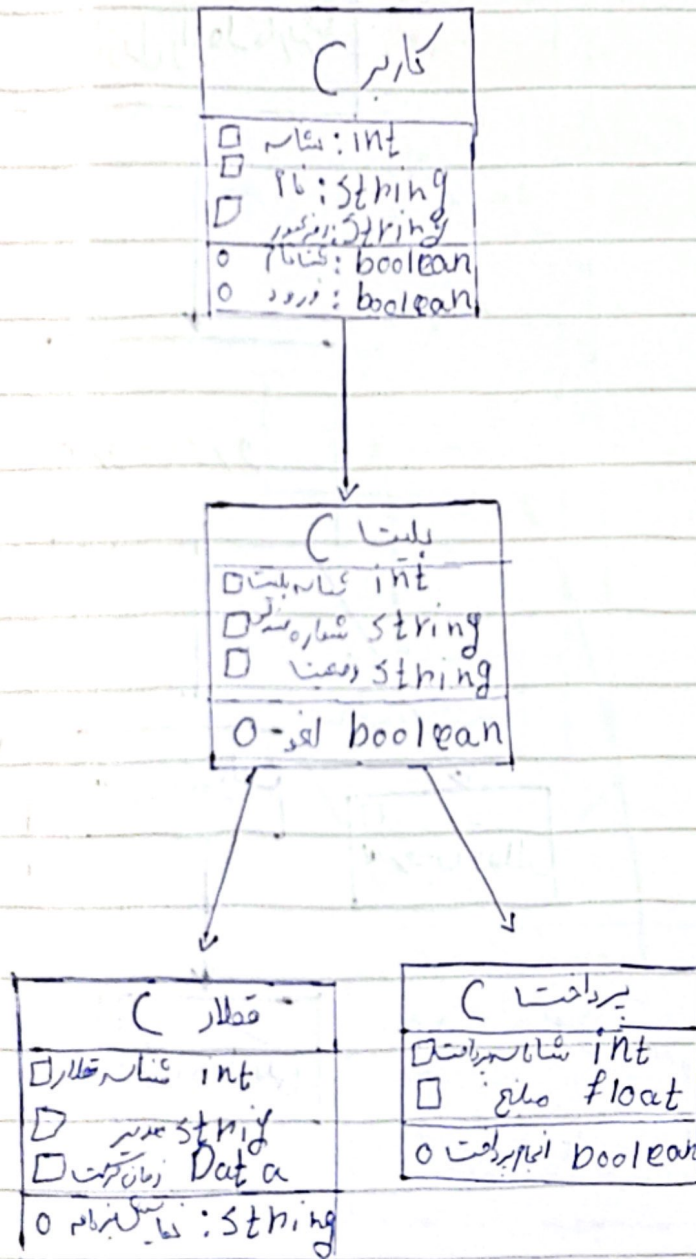 کاربر C
شناسه : int
نام : String
رمزعبور : String
ثبتنام : boolean
ورود : boolean
بلیت C
شناسه بلیت int
شماره صندلی string
وضعیت string
لغو boolean
قطار C
شناسه قطار int
strig
زمان حرکت Data
نمایش برنامه : string
پرداخت C
شناسه پرداخت int
مبلغ float
انجام پرداخت boolean